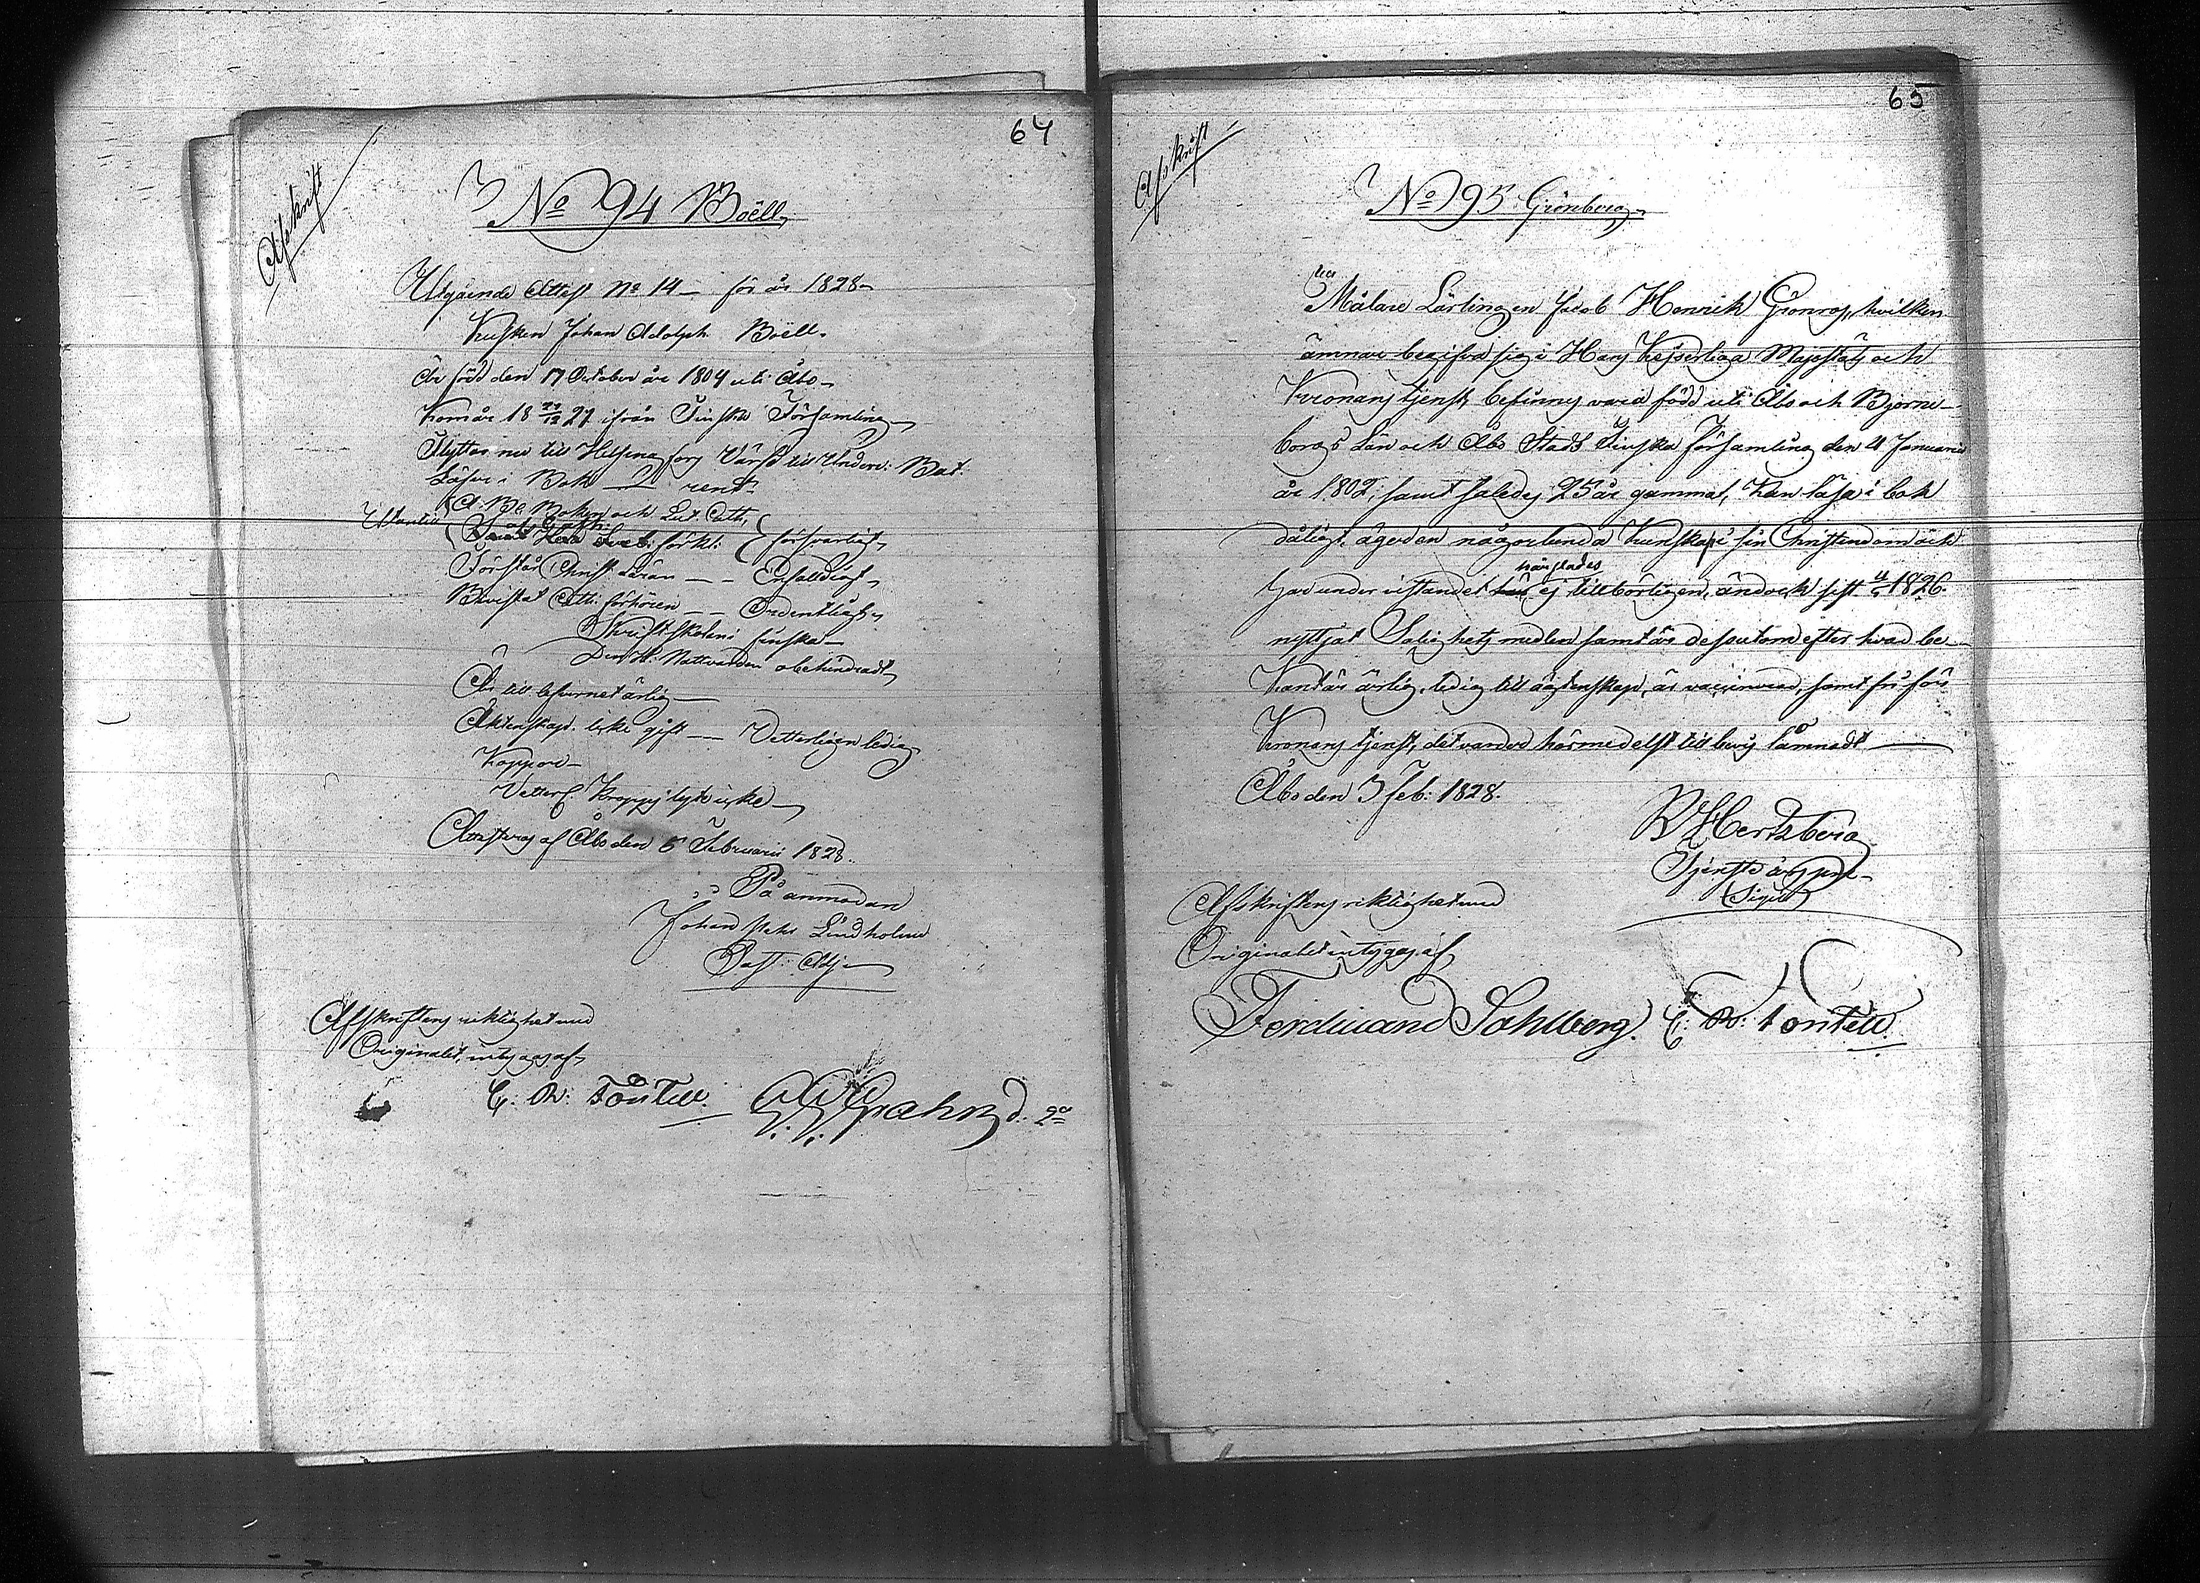 64
Afskrift
No 94 Boëll
Utgående Attest No 14 — för år 1828
Kusken Johan Adolph Boëll
Är född den 17 October år 1804 uti Åbo
Kom år 18 27 ifrån Finska Församling
Flyttar nu till Helsingfors Värfd till Underv: Bat:
Läser i Bok — rent
Utantill A. B. C. Boken och Lut. Cath.
förkl: försvarligt
Förstår Christ. läran — Enfaldigt
Bevistat Cath: förhören — Ordentligt
Skriftskolan: finska
Den H: Nattvarden obehindradt
Är till lefvernet ärlig
Äktenskap. icke gift — Vetterligen ledig
Koppor
Vetterl. kroppslyte icke
Attesteras af Åbo den 5 Februarii 1828.
På anmodan
Johan Lindholm
Past: Adj
Afskriftens riktighet med
Originalet, intygas af
C: R: Fontell. G. G. Grahn d. 2a
65
Afskrift
No 95 Grönberg
Målare Lärlingen Jacob Henrik Grönroos, hvilken
ämnar begifva sig i Hans Kejserliga Majestäts och
Kronans tjenst, befinnes vara född uti Åbo och Björne-
borgs Län och Åbo Stads Finska församling den 4 Januarii
år 1802, samt således 25 år gammal, kan läsa i bok
dåligt, äger en någorlunda kunskap i sin Christendom och
har under vistandet härstädes ej tillbörligen, ändock sist 1826.
nyttjat Salighets medlen samt är dessutom efter hvad be-
kant är ärlig, ledig till ägtenskap, är vaccinerad, samt fri för
Kronans tjenst, det varder härmedelst till bevis lämnadt
Åbo den 5 Feb: 1828.
R Hertzberg
Tjenstförr
Sigill
Afskriftens riktighet med
Originalet intygas af
Ferdinand Sahlberg. C: R: Fontell.